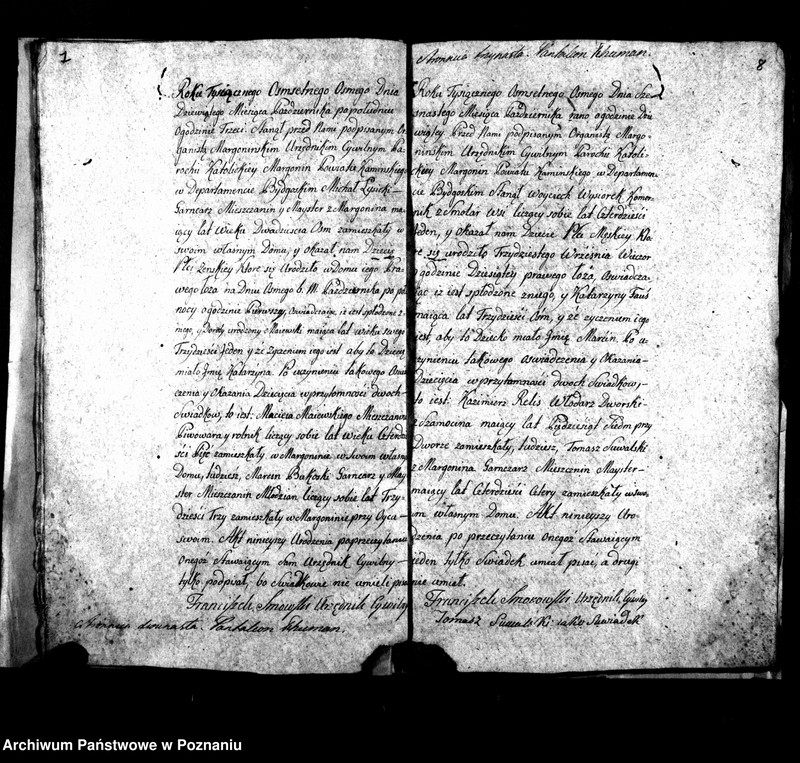 1
Roku Tysiącznego Osmsetnego Osmego Dnia
Dziewiątego Miesiąca Pazdziernika popołudniu
Ogodzinie Trzeci. Stanął przed Nami podpisanym Or
ganistą Margoninskim Urzędnikim Cywilnym Pa
rochii Katolickiey Margonin Powiatu Kaminskiego
w Departamencie Bydgoskim Michał Lysicki
Garncarz Mieszczanin y Mayster z Margonina ma
iący lat Wieku Dwadziescia Osm zamieszkały w
swoim własnym Domu, y okazał nam Dziecię
Płci Zenskiey ktore się Urodziło w domu iego Pra
wego łoza na Dniu Osmego b. M. Pazdziernika po puł
nocy ogodzinie Pierwszey, oswiadczaiąc iz iest spłodzone z
niego, y Doroty urodzony Maiewski maiąca lat wieku swego
Trzydziesci Jeden y ze Zyczeniem iego iest aby to Dziecię
miało Jmię Katarzyna. Po uczynieniu takowego Oswiad
czenia y Okazania Dziecięcia w przytomnosci dwoch
Swiadkow, to iest: Macieia Maiewskiego Mieszczanina
Piwowara y rolnik liczący sobie lat Wieku Czterdzie
sci Pięć zamieszkały w Margoninie w Swoim własnym
Domu, tudziesz, Marcin Bakoski Garncarz y May
ster Mieszczanin Młodzian liczący sobie lat Trzy
dziesci Trzy zamieszkały w Margoninie przy Oycu
swoim. Akt ninieyszy Urodzenia po przeczytaniu
Onegoz Stawaiącym Sam Urzędnik Cywilny
tylko podpisał, bo Swiatkowie nie umieli
Franciszek Smowski Urzędnik Cywilny
stronnica dwunasta. Pantalion Schuman.
stronnica trzynasta. Pantalion Schuman.
8
Roku Tysiącznego Osmsetnego Osmego Dnia Sze
snastego Miesiąca Pazdziernika rano ogodzinie Dzie
wiątey Przed Nami podpisanym Organistą Margo
ninskim Urzędnikim Cywilnym Parochii Katoli
ckiey Margonin Powiatu Kaminskiego w Departamen
cie Bydgoskim Stanął Woyciech Wysiorek Komor
nik z Smolar Wsi liczący sobie lat Czterdziesci
Jeden, y Okazał nam Dziecie Płci Męskiey kto
re się urodziło Trzydziestego Września Wieczor
ogodzinie Dziesiątey prawego łoza, oswiadcza
iąc iz iest spłodzone z niego, y Katarzyny Fauś
maiąca lat Trzydziesci Osm, y ze zyczeniem iego
iest, aby to Dziecko miało Jmię Marcin. Po u
czynieniu takowego oswiadczenia y Okazania
Dziecięcia w przytomnosci dwoch Swiadkow,
to iest: Kazimierz Relis Włodarz Dworski
z Szamocina maiący lat Pięćdziesiąt Siedm przy
Dworze zamieszkały, tudziesz, Tomasz Suwalski
z Margonina Garnczarz Miesczenin Mayster
maiący lat Czterdziesci Cztery zamieszkały w swo
im własnym Domu. Akt ninieyszy Uro
dzenia po przeczytaniu Onegoz Stawaiącym
ieden tylko Swiadek umiał pisac, a drugi
nie umiał.
Franciszek Smorowski Urzędnik Cywilny
Tomasz Suwalski iako Swiadek
Archiwum Państwowe w Poznaniu